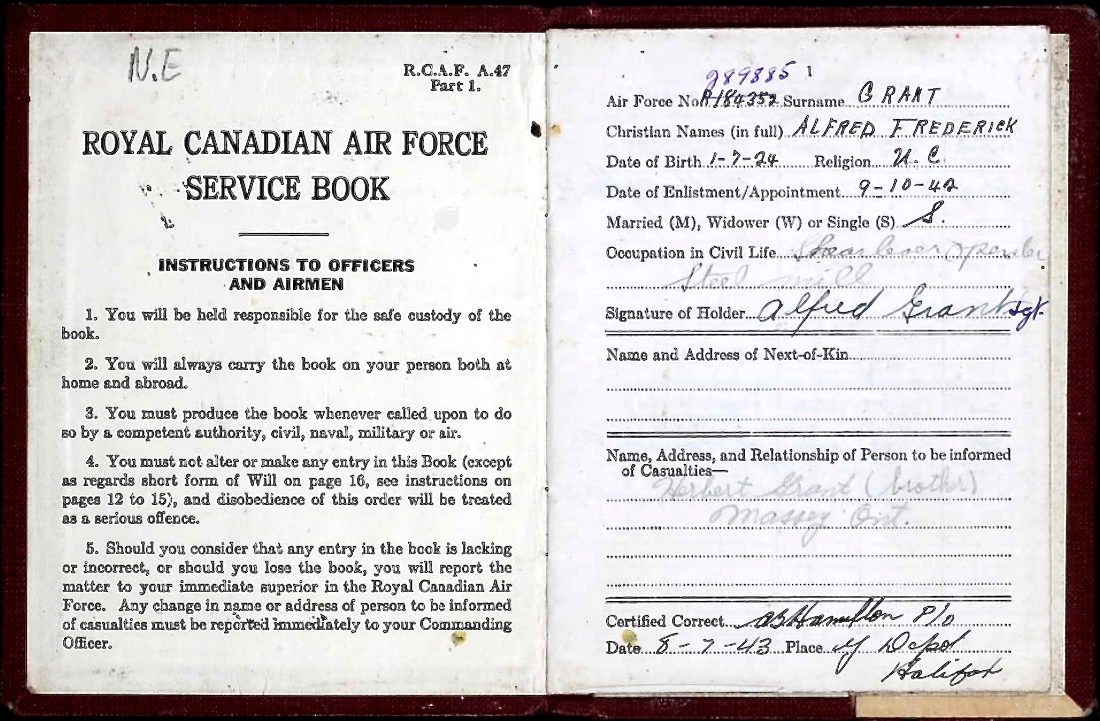 N.E
R.C.A.F. A.47
Part 1.
ROYAL CANADIAN AIR FORCE
SERVICE BOOK
INSTRUCTIONS TO OFFICERS
AND AIRMEN
1. You will be held responsible for the safe custody of the
book.
2. You will always carry the book on your person both at
home and abroad.
3. You must produce the book whenever called upon to do
so by a competent authority, civil, naval, military or air.
4. You must not alter or make any entry in this Book (except
as regards short form of Will on page 16, see instructions on
pages 12 to 15), and disobedience of this order will be treated
as a serious offence.
5. Should you consider that any entry in the book is lacking
or incorrect, or should you lose the book, you will report the
matter to your immediate superior in the Royal Canadian Air
Force. Any change in name or address of person to be informed
of casualties must be reported immediately to your Commanding
Officer.
1
289885
Air Force No. R184352 Surname GRANT
Christian Names (in full) ALFRED FREDERICK
Date of Birth 1-7-24 Religion U.C
Date of Enlistment/Appointment 9-10-42
Married (M), Widower (W) or Single (S) S.
Occupation in Civil Life Shear lever operator
Steel mill
Signature of Holder Alfred Grant Sgt.
Name and Address of Next-of-Kin
Name, Address, and Relationship of Person to be informed
of Casualties—
Herbert Grant (brother)
Massey Ont.
Certified Correct Hamilton P/O
Date 8-7-43 Place Y Depot
Halifax